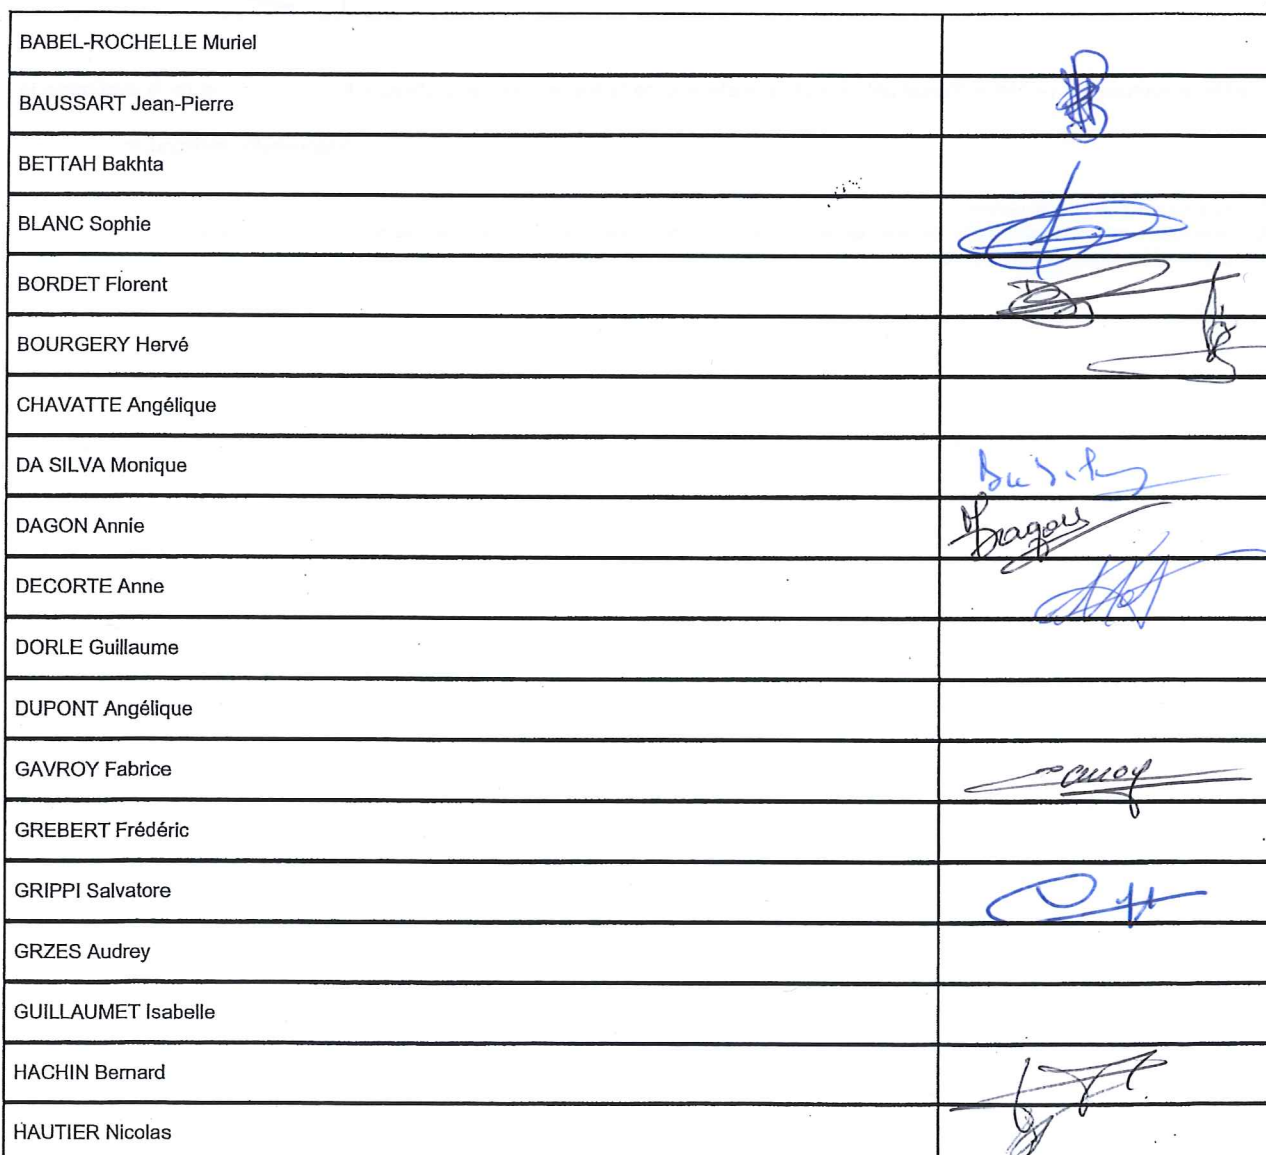 BABEL-ROCHELLE Muriel
BAUSSART Jean-Pierre
BETTAH Bakhta
BLANC Sophie
BORDET Florent
BOURGERY Hervé
CHAVATTE Angélique
DA SILVA Monique
DAGON Annie
DECORTE Anne
DORLE Guillaume
DUPONT Angélique
GAVROY Fabrice
GREBERT Frédéric
GRIPPI Salvatore
GRZES Audrey
GUILLAUMET Isabelle
HACHIN Bernard
HAUTIER Nicolas